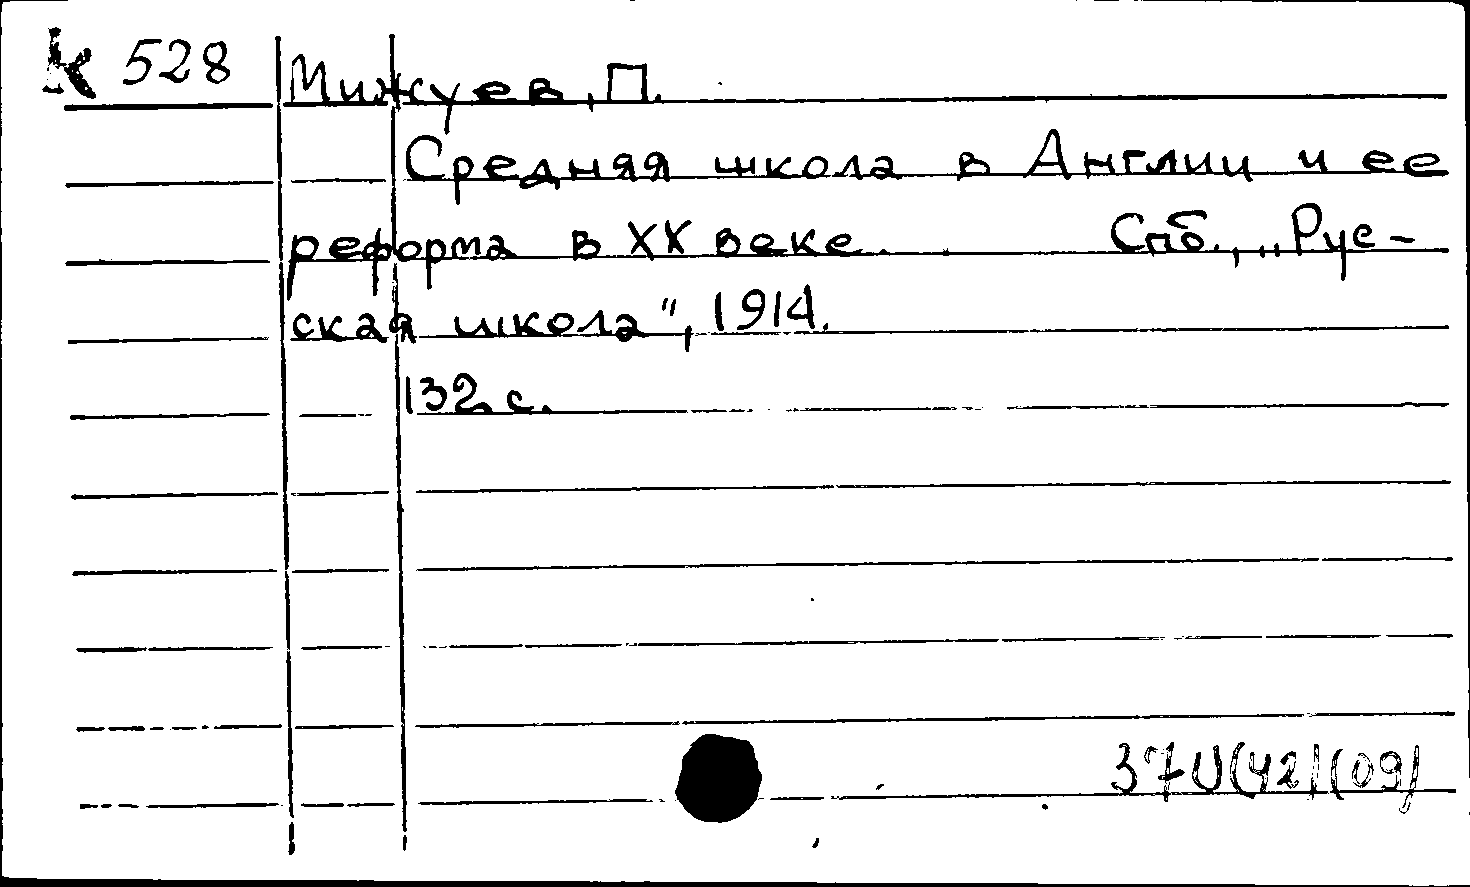 К 528 Мижуев, П.
Средняя школа в Англии и ее
реформа в XX веке. Спб., „Рус-
ская школа", 1914.
132 с.
37И(42)(09)